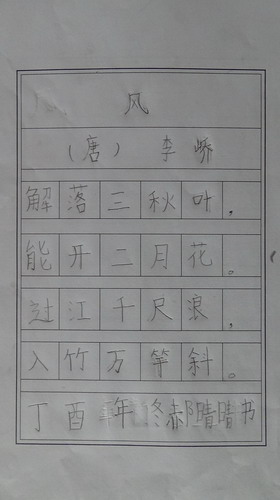 风
（唐） 李峤
解落三秋叶，
能开二月花。
过江千尺浪，
入竹万竿斜。
丁酉年冬郝晴晴书